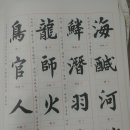 海鹹河
鱗潛羽
龍師火
鳥官人